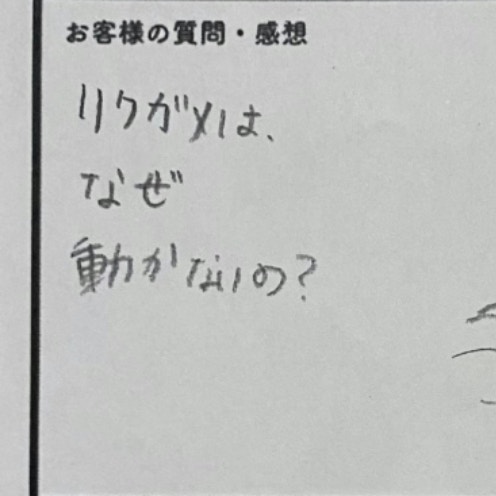 お客様の質問・感想
リクガメは、
なぜ
動かないの?